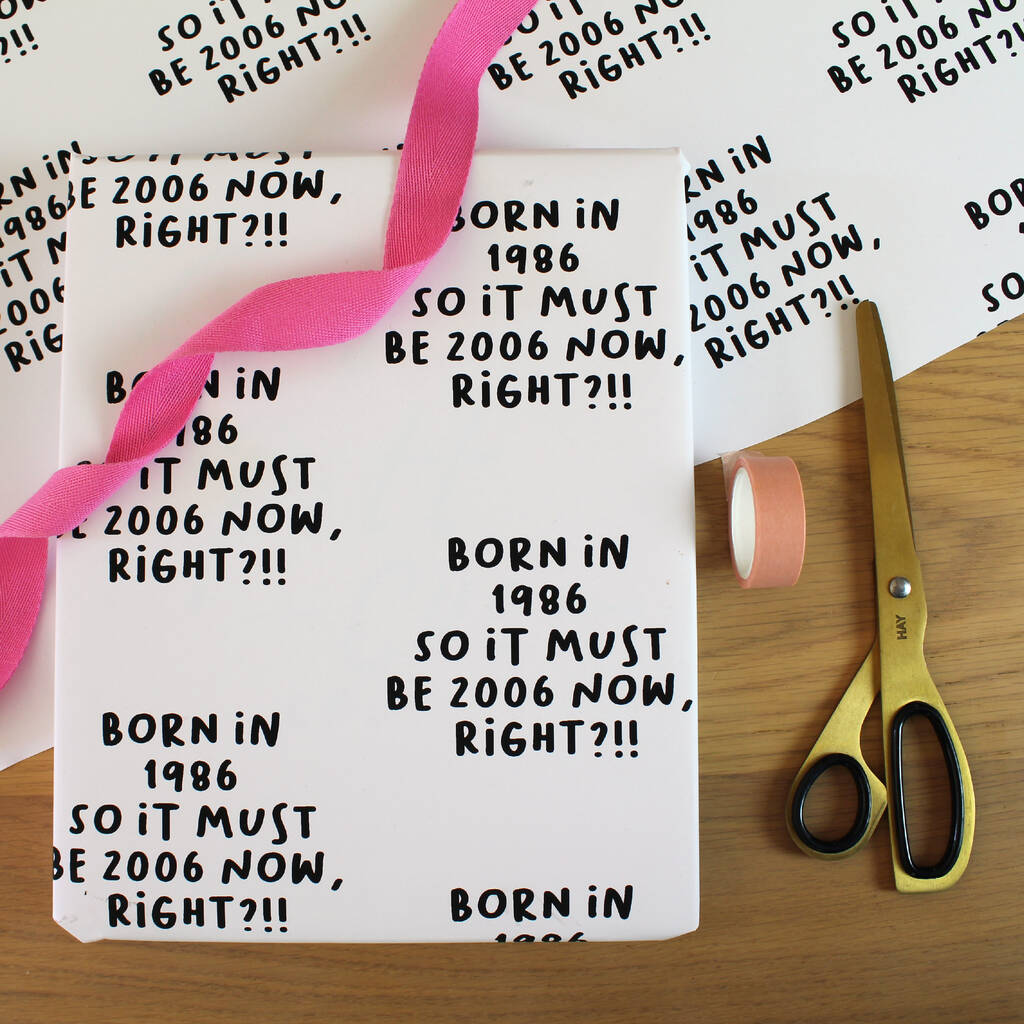 SO iT
BE 2006 NOW,
RiGHT?!!
SO iT
BE 2006 NOW,
RiGHT?!!
SO iT
BE 2006 NOW
RiGHT?!!
1986
2006
BORN iN
1986
SO iT MUST
BE 2006 NOW,
RiGHT?!!
SO iT MUST
BE 2006 NOW,
RiGHT?!!
BORN iN
1986
SO iT MUST
BE 2006 NOW,
RiGHT?!!
iN
iT MUST
2006 NOW,
RiGHT?!!
BORN iN
1986
SO iT MUST
BE 2006 NOW,
RiGHT?!!
BORN iN
1986
SO iT MUST
BE 2006 NOW,
RiGHT?!!
BORN iN
1986
SO
HAY